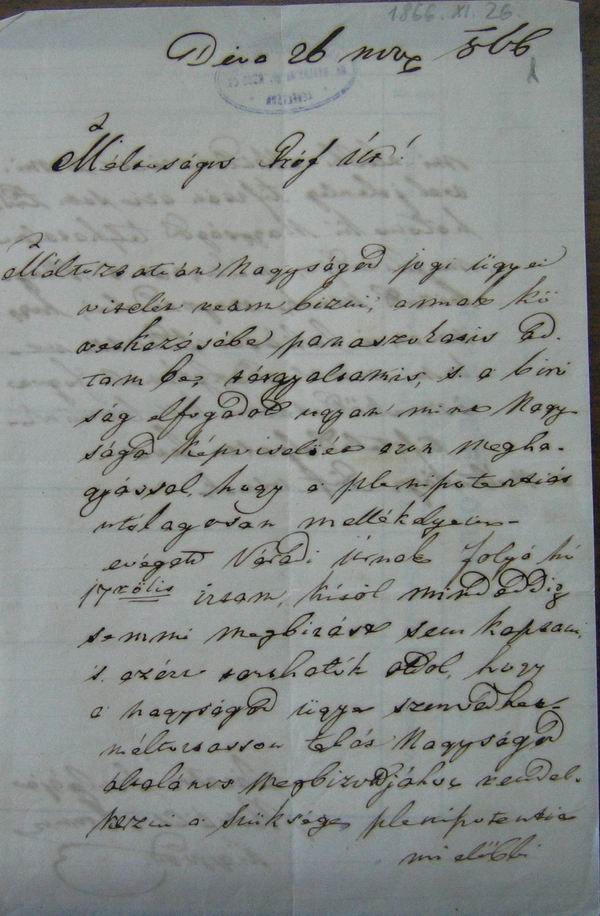 1866. XI. 26.
Déva 26 nov 866
Méltoságos Gróf Úr!
Méltoztatván Nagyságod jogi ügyei
viselését reám bizni, annak kö
vetkezésébe panaszokatis ad-
tam be, tárgyaltamis, s. a biró
ság elfogadott ugyan mint Nagy-
ságod képviselőjét azon megha-
gyással, hogy a plenipotentiát
utólagosan mellékeljem-
evégett Váradi úrnak folyó hó
17kéről írtam, kitől mindeddig
semmi megbizást sem kaptam,
s. azért tarthatok attol, hogy
a nagyságod ügye szenvedhet-
méltoztasson tehát Nagyságod
általános megbizottjához rendel-
kezni a szükséges plenipotentia
mi előbbi